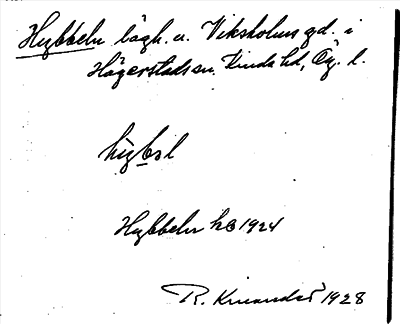 Hybbeln lägh. u. Viksholms gd. i
Hägerstads sn. Kinda hd, Ög. l.
hỳbəl
Hybbeln hb 1924
R. Kinander 1928